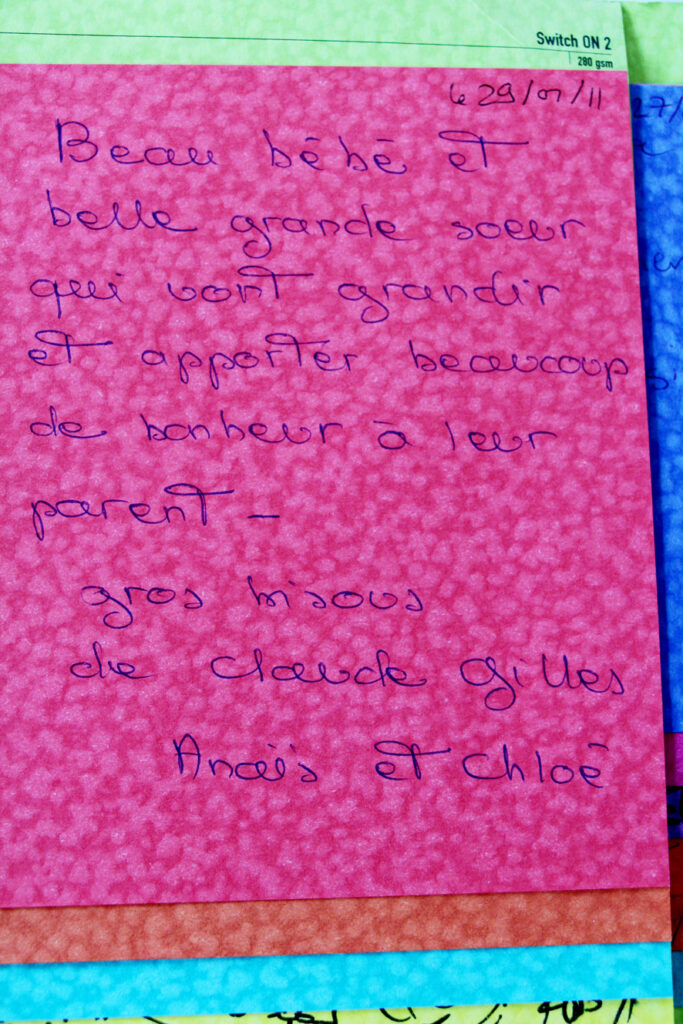 Switch ON 2
280 gsm
le 29/01/11
27/
Beau bébé et
belle grande soeur
qui vont grandir
et apporter beaucoup
de bonheur à leur
parent -
gros bisous
de Claude Gilles
Anaïs et Chloé